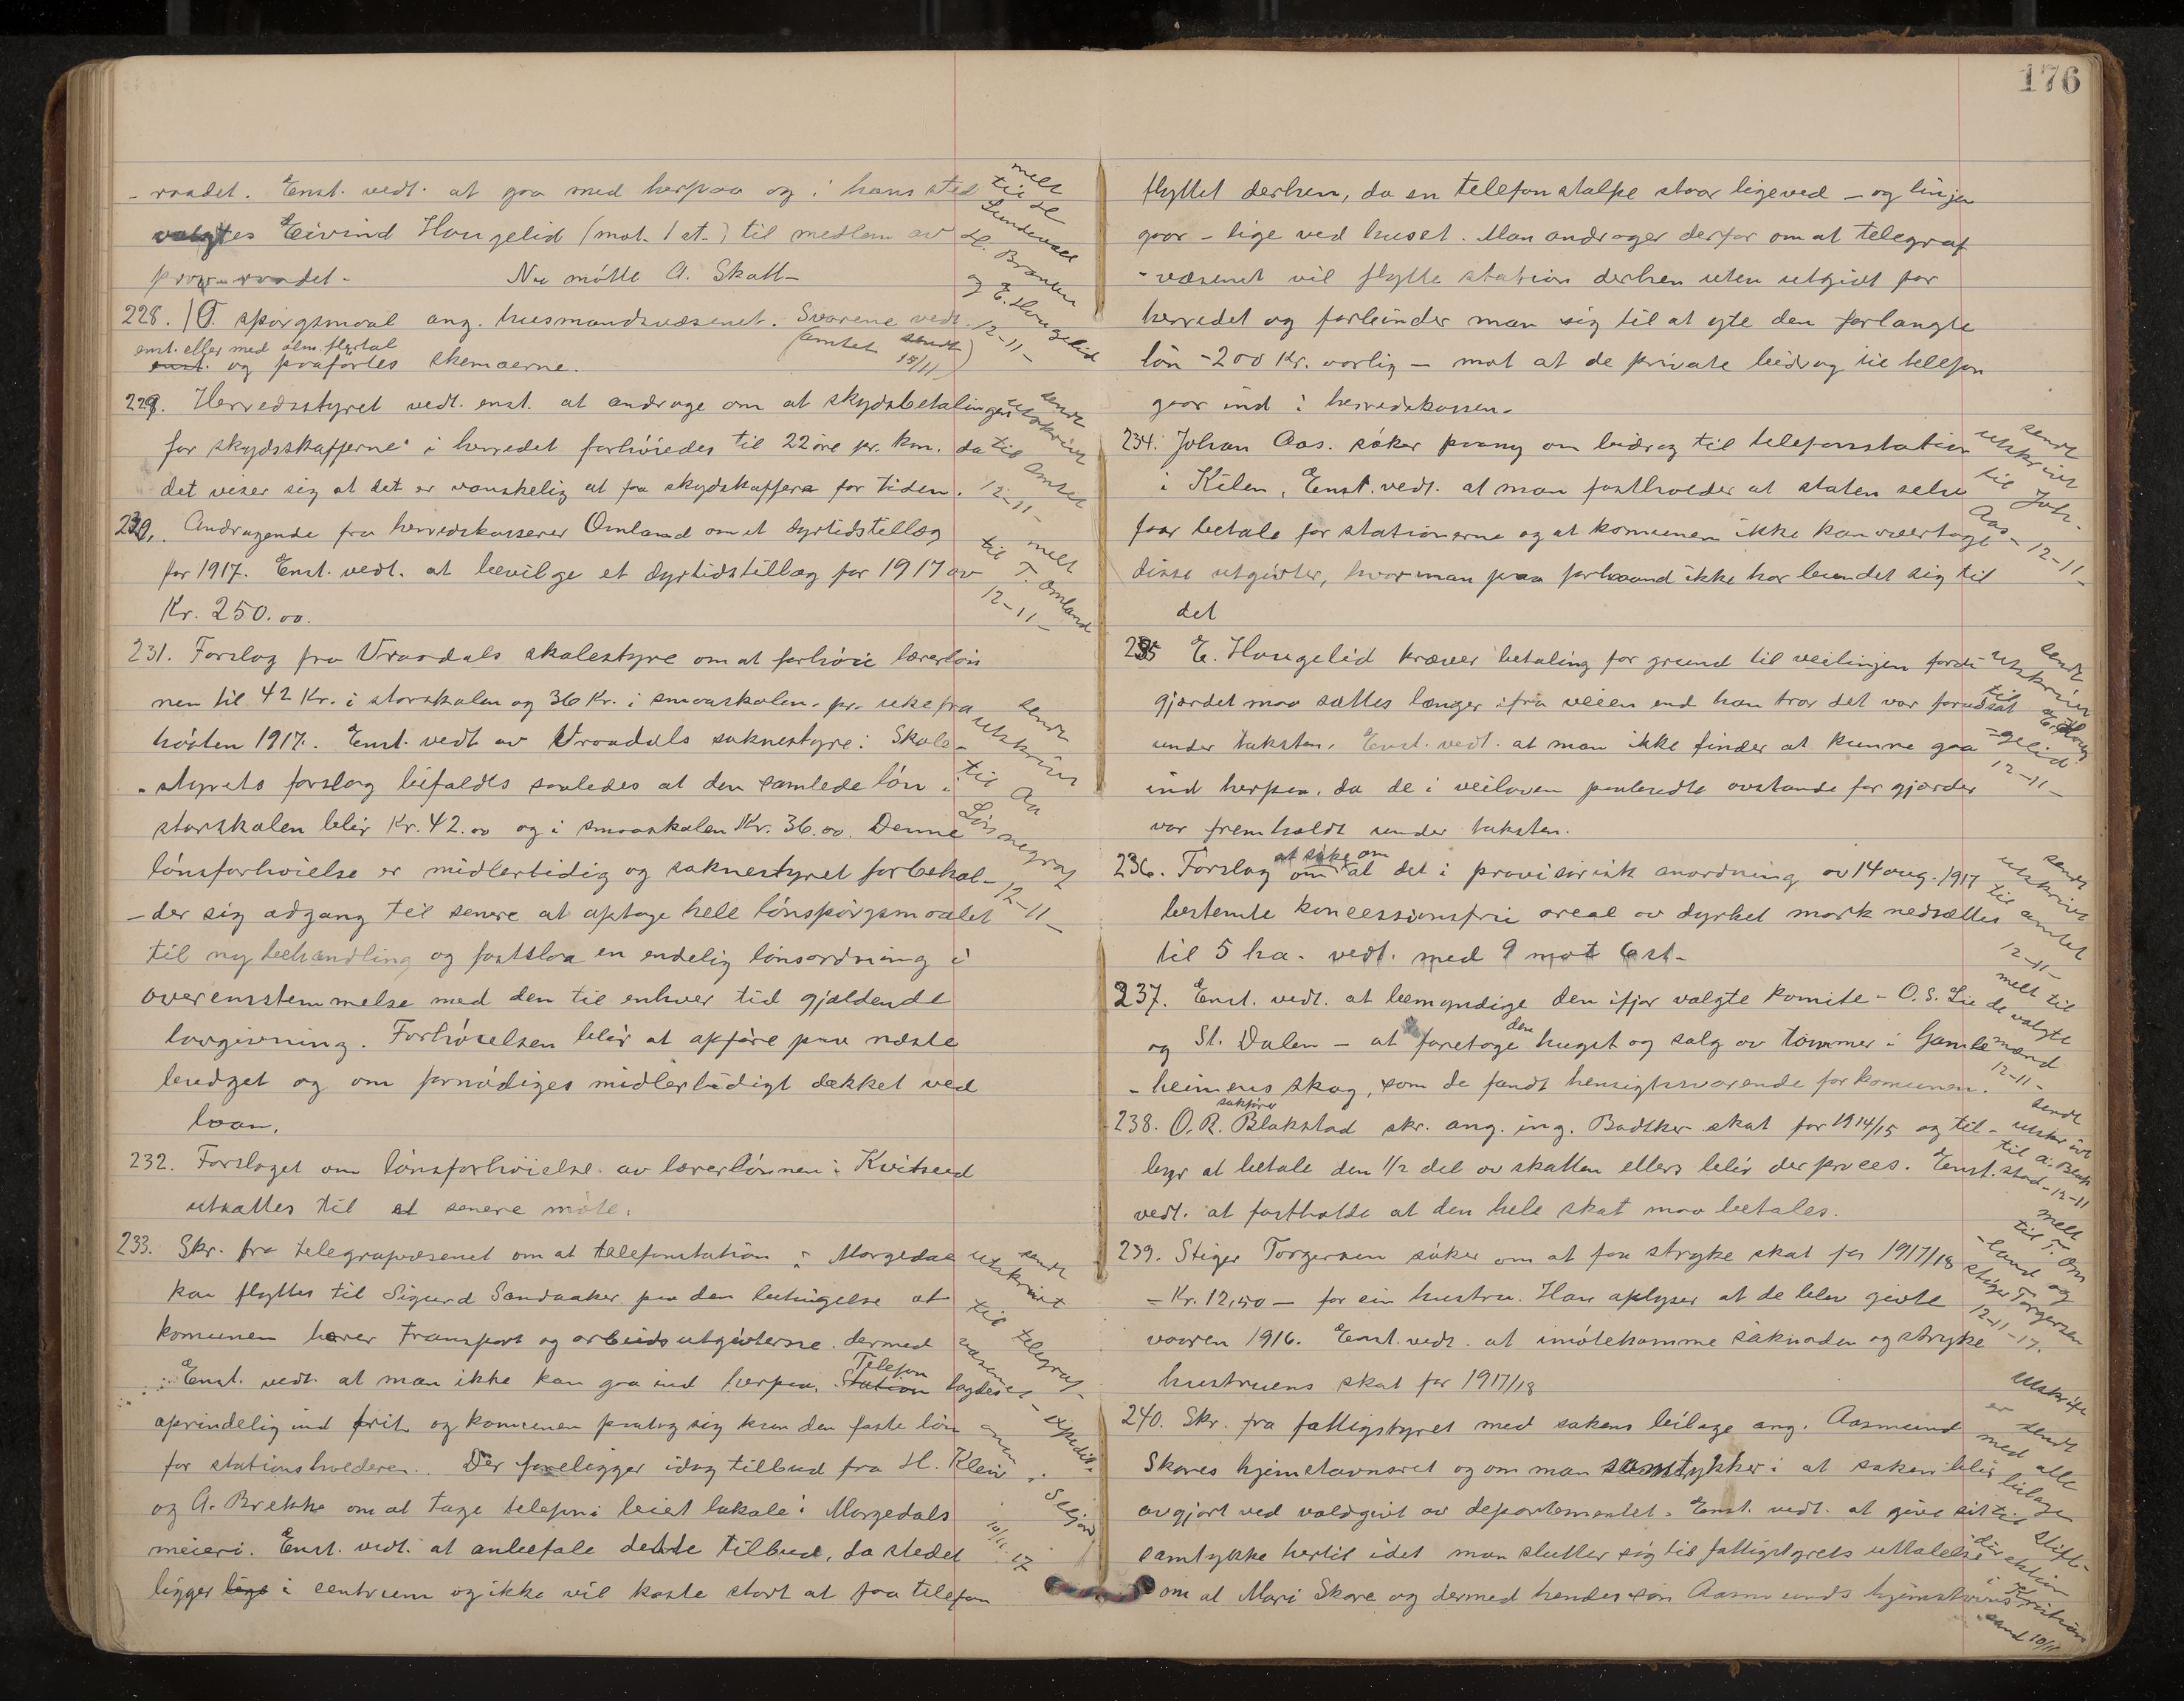 176
- raadet. Enst. vedt. at gaa med herpaa og i hans sted
valgtes Eivind Hougelid (mot. 1 st.) til medlem av
prov-raadet - Nu møtte A. Skatt-
melt til H Sundevall H. Braaten og E. Hougelid 12-11-
228. spørgsmaal ang. husmandsvæsenet. Svarene vedt.
enst. eller med alm. flertal
enst. og paaførtes skemaerne. (amtet sendt 18/11)
229. Herredsstyret vedt. enst. at andrage om at skydsbetalingen
for skydsskafferne i herredet forhøiedes til 22 øre pr. km. da
det viser sig at det er vanskelig at faa skydskaffere for tiden.
sendt utskrivt til Amtet 12-11-
230. Andragende fra herredskasserer Omland om et dyrtidstillæg
for 1917. Enst. vedt. at bevilge et dyrtidstillæg for 1917 av
Kr. 250.00.
melt til T. Omland 12-11-
231. Forslag fra Vraadals skolestyre om at forhøie lærerløn
nen til 42 Kr. i storskolen og 36 Kr. i smaaskolen pr. uke fra
høsten 1917. Enst. vedt av Vraadals soknestyre: Skole-
- styrets forslag bifaldes saaledes at den samlede løn i
storskolen blir Kr. 42.00 og i smaaskolen Kr. 36.00. Denne
lønsforhøielse er midlertidig og soknestyret forbehol-
- der sig adgang til senere at optage hele lønspørgsmaalet
til ny behandling og fastslaa en endelig lønsordning i
overensstemmelse med den til enhver tid gjældende
lovgivning. Forhøielsen blir at opføre paa næste
budget og om fornødiges midlertidigt dækket ved
laan.
sendt utskrivt til Aa Lønnegraf 12-11-
232. Forslaget om lønsforhøielse av lærerlønnen i Kviteseid
utsattes til et senere møte.
233. Skr. fra telegrafvæsenet om at telefonstation i Morgedal
kan flyttes til Sigurd Sandaaker paa den betingelse at
komunen bærer transport og arbeidsutgivterne dermed
Enst. vedt. at man ikke kan gaa ind herpaa. Station Telefon lagdes
oprindelig ind frit og komunen paatog sig kun den faste løn
for stationsholderen. Der foreligger idag tilbud fra H. Kleiv
og A. Brekke om at tage telefon i leiet lokale i Morgedals
meieri. Enst. vedt. at anbefale dette tilbud, da stedet
ligger lige i centrum og ikke vil koste stort at faa telefon
sendt utskrivt til telegraf- væsen - expedit- i Seljord 10/11 17
flyttet derhen, da en telefonstolpe staar ligeved - og linjen
gaar - lige ved huset. Man andrager derfor om at telegraf
- væsenet vil flytte station derhen uten utgivt for
herredet og forbinder man sig til at yte den forlangte
løn - 200 Kr. aarlig - mot at de private bidrag til telefon
gaar ind i herredskassen.
234. Johan Aas. søker paany om bidrag til telefonstation
i Kilen. Enst. vedt. at man fastholder at staten selv
faar betale for stationerne og at komunen ikke kan overtage
disse utgivter, hvor man paa forhaand ikke har bundet sig til
det
sendt utskrivt til Joh. Aas - 12-11-
235 E. Hougelid kræver betaling for grund til veilinjen fordi
gjærdet maa sættes længer ifra veien end han tror det var forudsat
under taksten. Enst. vedt. at man ikke finder at kunne gaa
ind herpaa, da de i veiloven paabudte avstande for gjærder
var fremholdt under taksten.
sendt utskrivt til E. Houg -gelid 12-11-
236. Forslag om at søke om at det i provisorisk anordning av 14 aug. 1917
bestemte koncessionsfrie areal av dyrket mark nedsættes
til 5 ha. vedt. med 9 mot 6 st-
sendt utskrivt til amtet 12-11-
237. Enst. vedt. at bemyndige den ifjor valgte komite - O. S. Lie
og St. Dalen - at foretage den hugst og salg av tømmer i Gamle
- heimens skog, som de fandt hensigtssvarende for komunen.
melt til de valgte mænd 12-11-
238. O.R. sakfører Blakstad skr. ang. ing. Bødtker skat for 1914/15 og til-
byr at betale den 1/2 del av skatten ellers blir der proces. Enst.
vedt. at fastholde at den hele skat maa betales.
sendt utskrivt til a. Blak stad - 12-11
239. Stiger Torgersen søker om at faa stryke skat for 1917/18
- Kr. 12,50 - for sin hustru. Han oplyser at de blev givte
vaaren 1916. Enst. vedt. at imøtekomme søknaden og stryke
hustruens skat for 1917/18
melt til T. Om -land og Stiger Torgersen 12-11-17.
240. Skr. fra fattigstyret med sakens bilage ang. Aasmund
Skores hjemstavnsret og om man samtykker i at saken blir
avgjort ved voldgivt av departementet. Enst. vedt. at give sit
samtykke hertil idet man slutter sig til fattigstyrets uttalelse
om at Mari Skore og dermed hendes søn Aasmunds hjemstavns
Utskrift er sendt med alle bilage til Stifts- direktion i Kristian sand 10/11